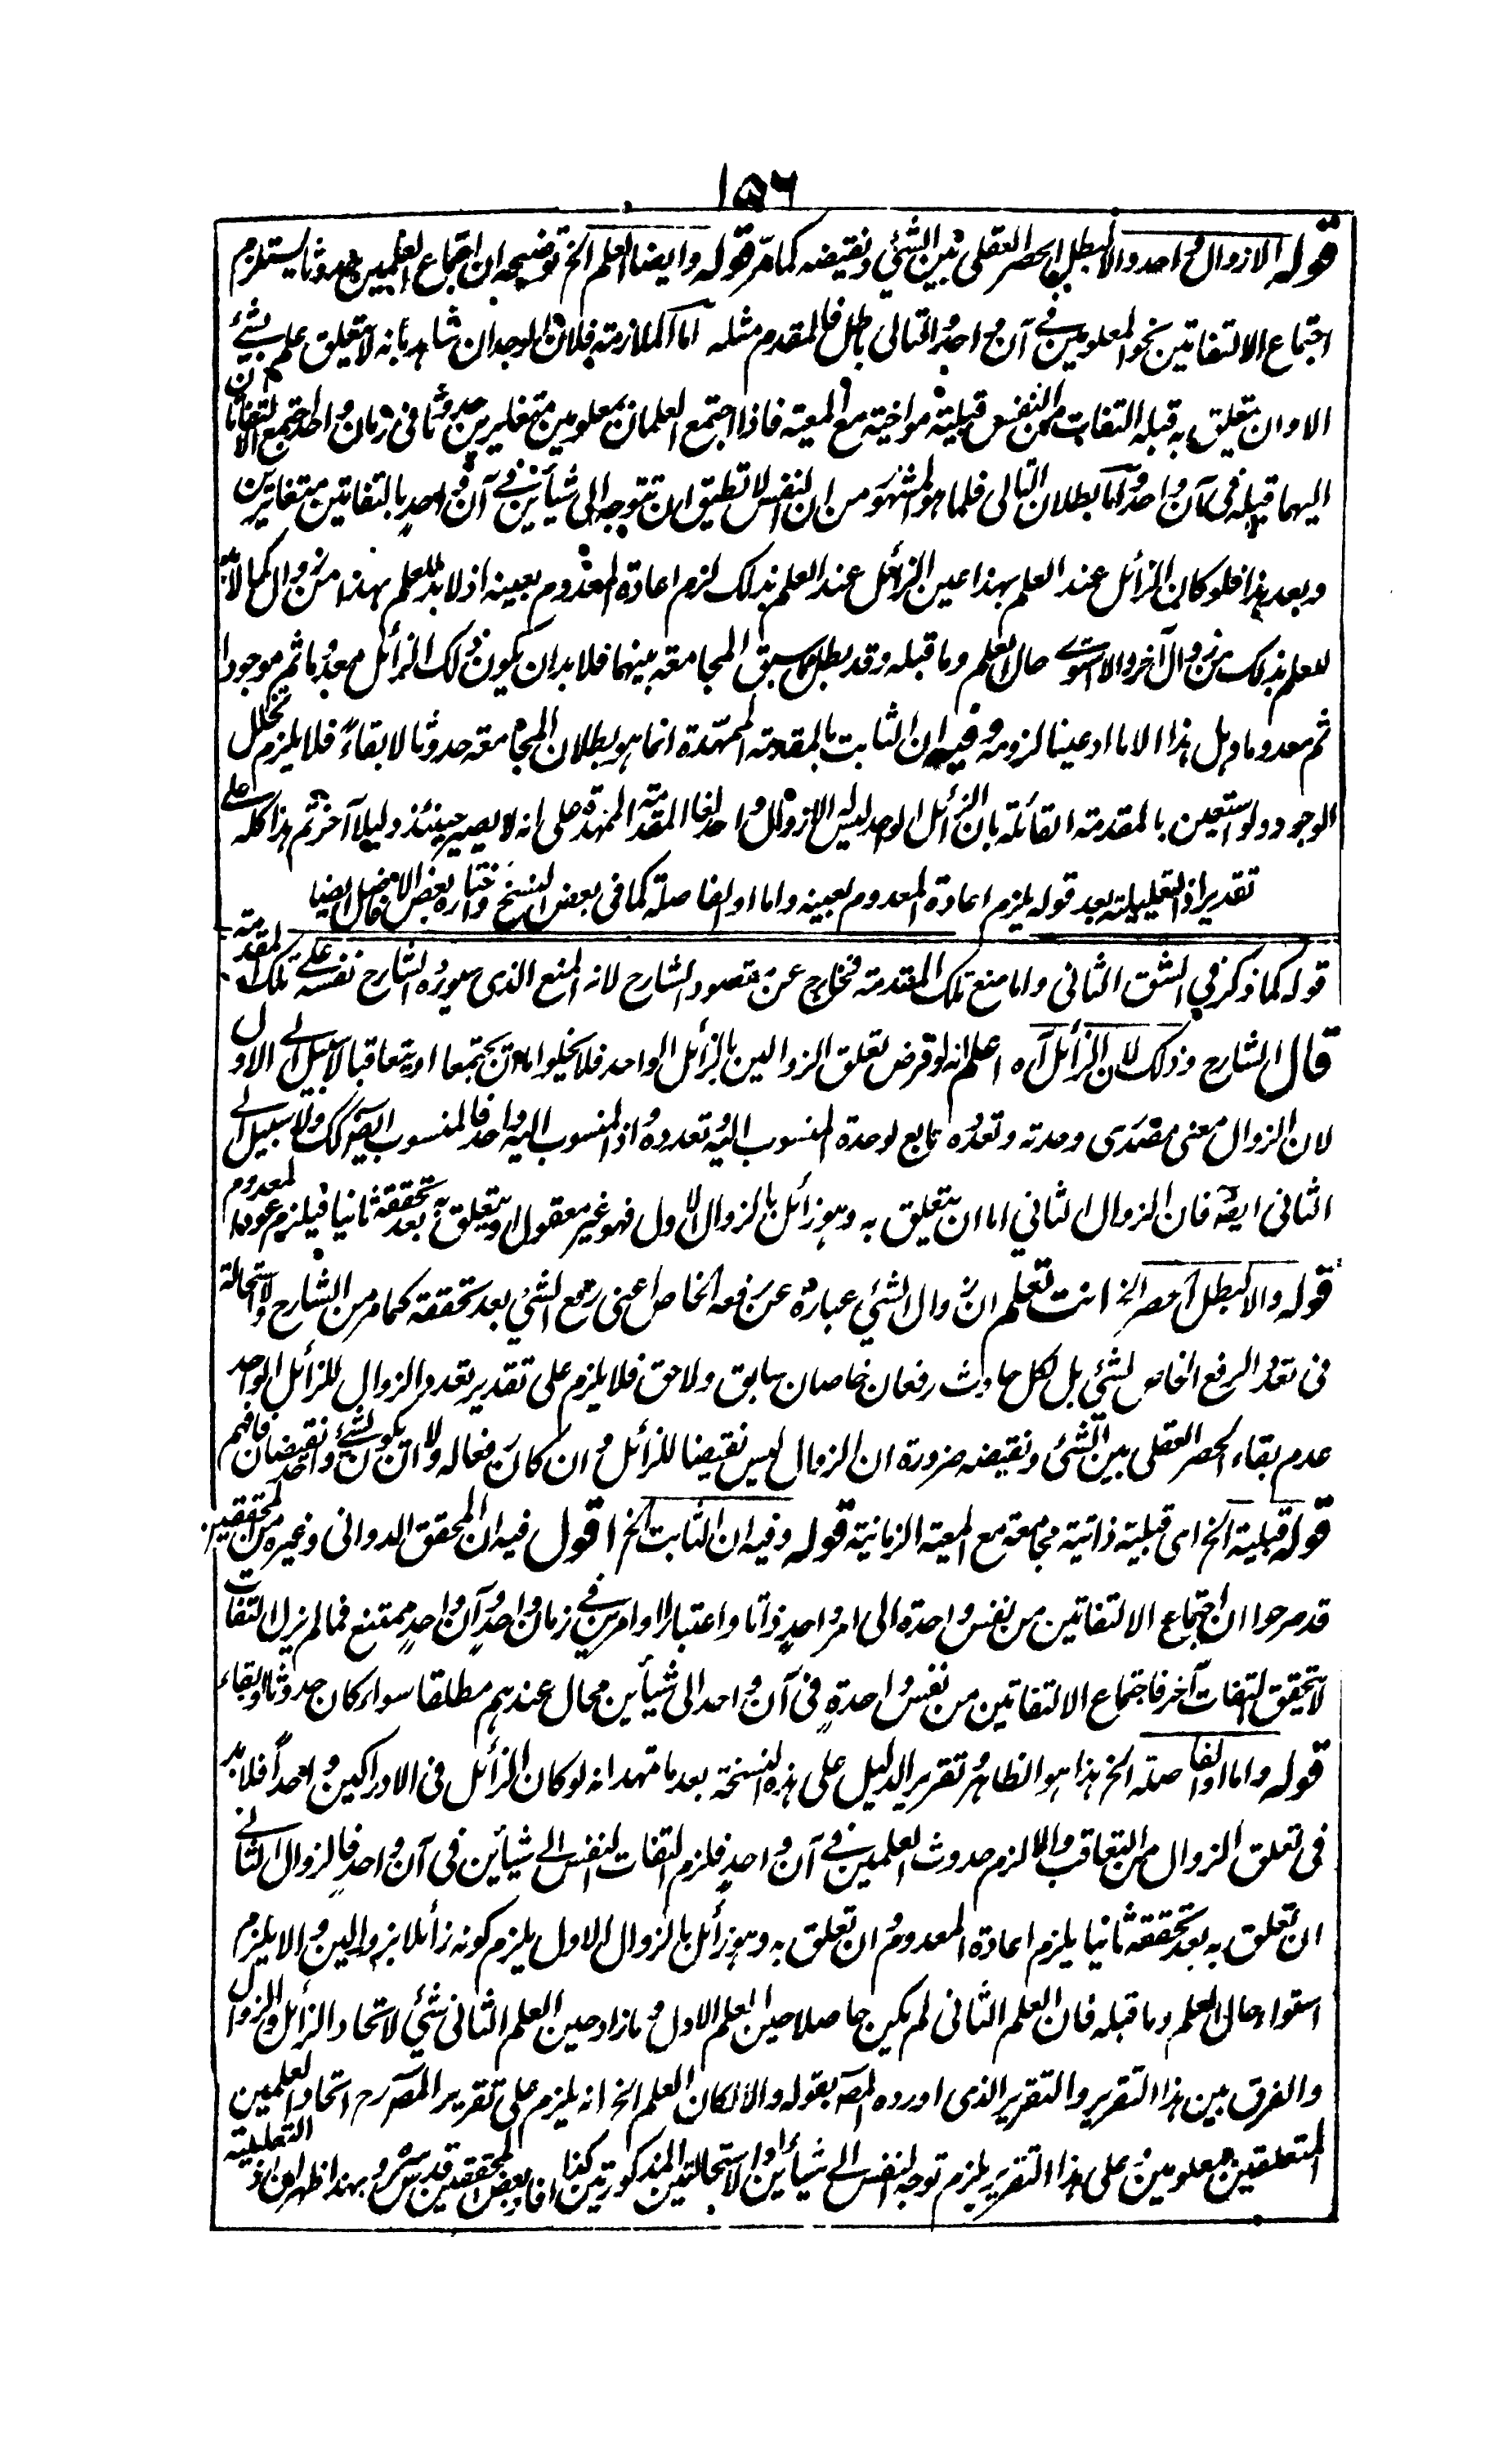 ١٥٦
قوله الا زوال واحد والا لبطل الحصر العقلي بين الشئ ونقيضه كما مر قوله وايضا العلم الخ توضيحه ان اجتماع العلمين حدوثا يستلزم
اجتماع الالتفاتين نحو المعلومين في آن واحد والتالي باطل فالمقدم مثله اما الملازمة فلان الوجدان شاهد بانه لا يتعلق علم بشئ
الا وان يتعلق به قبله التفات من النفس قبلية مواخية مع المعية فاذا اجتمع العلمان بمعلومين متغايرين حدوثا في زمان واحد اجتمع الالتفاتان
اليهما قبله في آن واحد واما بطلان التالي فلما هو المشهور من ان النفس لا تطيق ان تتوجه الى شيأين في آن واحد بالتفاتين متغايرين
وبعد هذا فلو كان الزائل عند العلم بهذا عين الزائل عند العلم بذلك لزم اعادة المعدوم بعينه اذ لابد للعلم بهذا من زوال كما لابد
للعلم بذلك من زوال آخر والا استوى حال العلم وما قبله وقد بطل مما سبق المجامعة بينهما فلا بد ان يكون ذلك الزائل معدوما ثم موجودا
ثم معدوما وهل هذا الا ما ادعينا لزومه وفيه ان الثابت بالمقدمة الممهدة انما هو بطلان المجامعة حدوثا لا بقاءً فلا يلزم تخلل
الوجود ولو استعين بالمقدمة القائلة بان الزائل الواحد ليس له الا زوال واحد لغا المقدمة الممهدة على انه لا يصير حينئذ دليلا آخر ثم هذا كله على
تقدير اذ التعليلية بعد قوله يلزم اعادة المعدوم بعينه واما او الفاصلة كما في بعض النسخ واختاره بعض الافاضل ايضا
قوله كما ذكر في الشق الثاني واما منع تلك المقدمة فخارج عن مقصود الشارح لانه المنع الذي سيورده الشارح نفسه على تلك المقدمة
قال الشارح وذلك لان الزائل آه اعلم انه لو فرض تعلق الزوالين بالزائل الواحد فلا يخلوا ما ان يجتمعا او يتعاقبا لا سبيل الى الاول
لان الزوال معنى مصدري وحدته وتعدده تابع لوحدة المنسوب اليه وتعدده واذ المنسوب اليه واحد فالمنسوب ايضا كذلك ولا سبيل الى
الثاني ايضه فان الزوال الثاني اما ان يتعلق به وهو زائل بالزوال الاول فهو غير معقول او يتعلق به بعد تحققه ثانيا فيلزم عود المعدوم
قوله والا لبطل الحصر الخ انت تعلم ان زوال الشئ عبارة عن رفعه الخاص اعني رفع الشئ بعد تحققه كما مر من الشارح ولا استحالة
في تعدد الرفع الخاص لشئ بل لكل حادث رفعان خاصان سابق ولاحق فلا يلزم على تقدير تعدد الزوال للزائل الواحد
عدم بقاء الحصر العقلي بين الشئ ونقيضه ضرورة ان الزوال ليس نقيضا للزائل وان كان رفعا له ولا ان يكون لشئ واحد نقيضان فافهم
قوله قبلية الخ اى قبلية ذاتية مجامعة مع المعية الزمانية قوله وفيه ان الثابت الخ اقول فيه ان المحقق الدواني وغيره من المحققين
قد صرحوا ان اجتماع الالتفاتين من نفس واحدة الى امر واحد ذاتا واعتبارا او امرين في زمان واحد وآن واحد ممتنع فما لم يزل التفات
لا يتحقق التفات آخر فاجتماع الالتفاتين من نفس واحدة في آن واحد الى شيأين محال عندهم مطلقا سواء كان حدوثا او بقاء
قوله واما او الفاصلة الخ هذا هو الظاهر وتقرير الدليل على هذه النسخة بعد ما تمهد انه لو كان الزائل في الادراكين واحداً فلا بد
في تعلق الزوال من التعاقب والا لزم حدوث العلمين في آن واحد فلزم التفات النفس الى شيأين في آن واحد فالزوال الثاني
ان تعلق به بعد تحققه ثانيا يلزم اعادة المعدوم وان تعلق به وهو زائل بالزوال الاول يلزم كونه زائلا بزوالين والا يلزم
استواء حال العلم وما قبله فان العلم الثاني لم يكن حاصلا حين العلم الاول وما زاد حين العلم الثاني شئ لاتحاد الزائل والزوال
والفرق بين هذا التقرير والتقرير الذي اورده المصـ بقوله والا لكان العلم الخ انه يلزم على تقرير المصـ رح اتحاد العلمين
المتعلقين بمعلومين وعلى هذا التقرير يلزم توجه النفس الى شيأين او الاستحالتين المذكورتين كذا افاد بعض المحققين قدس سره وبهذا ظهر ان اذ التعليلية